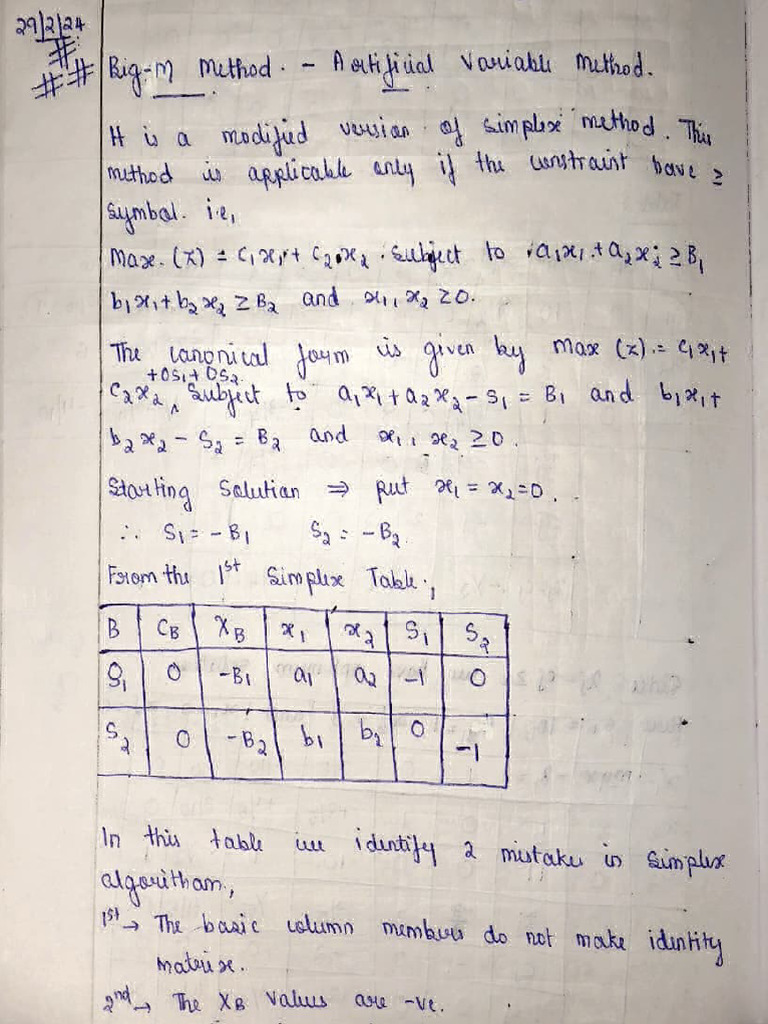 29/2/24
#
# #
Big-M Method. - Artificial Variable Method.
It is a modified version of simplex method. This
method is applicable only if the constraint have ≥
symbol. i.e,
Max. (z) = c₁x₁ + c₂x₂ . Subject to a₁x₁ + a₂x₂ ≥ B₁
b₁x₁ + b₂x₂ ≥ B₂ and x₁, x₂ ≥ 0.
The canonical form is given by Max (z) = c₁x₁ +
+0s₁ + 0s₂
c₂x₂ ^ Subject to a₁x₁ + a₂x₂ - s₁ = B₁ and b₁x₁ +
b₂x₂ - S₂ = B₂ and x₁, x₂ ≥ 0.
Starting Solution ⇒ put x₁ = x₂ = 0.
∴ S₁ = -B₁ S₂ = -B₂.
From the 1st Simplex Table.,
B CB XB x₁ x₂ S₁ S₂
S₁ 0 -B₁ a₁ a₂ -1 0
S₂ 0 -B₂ b₁ b₂ 0 -1
In this table we identify 2 mistakes in Simplex
algoritham.,
1st → The basic column members do not make identity
matrix.
2nd → The XB values are -ve.